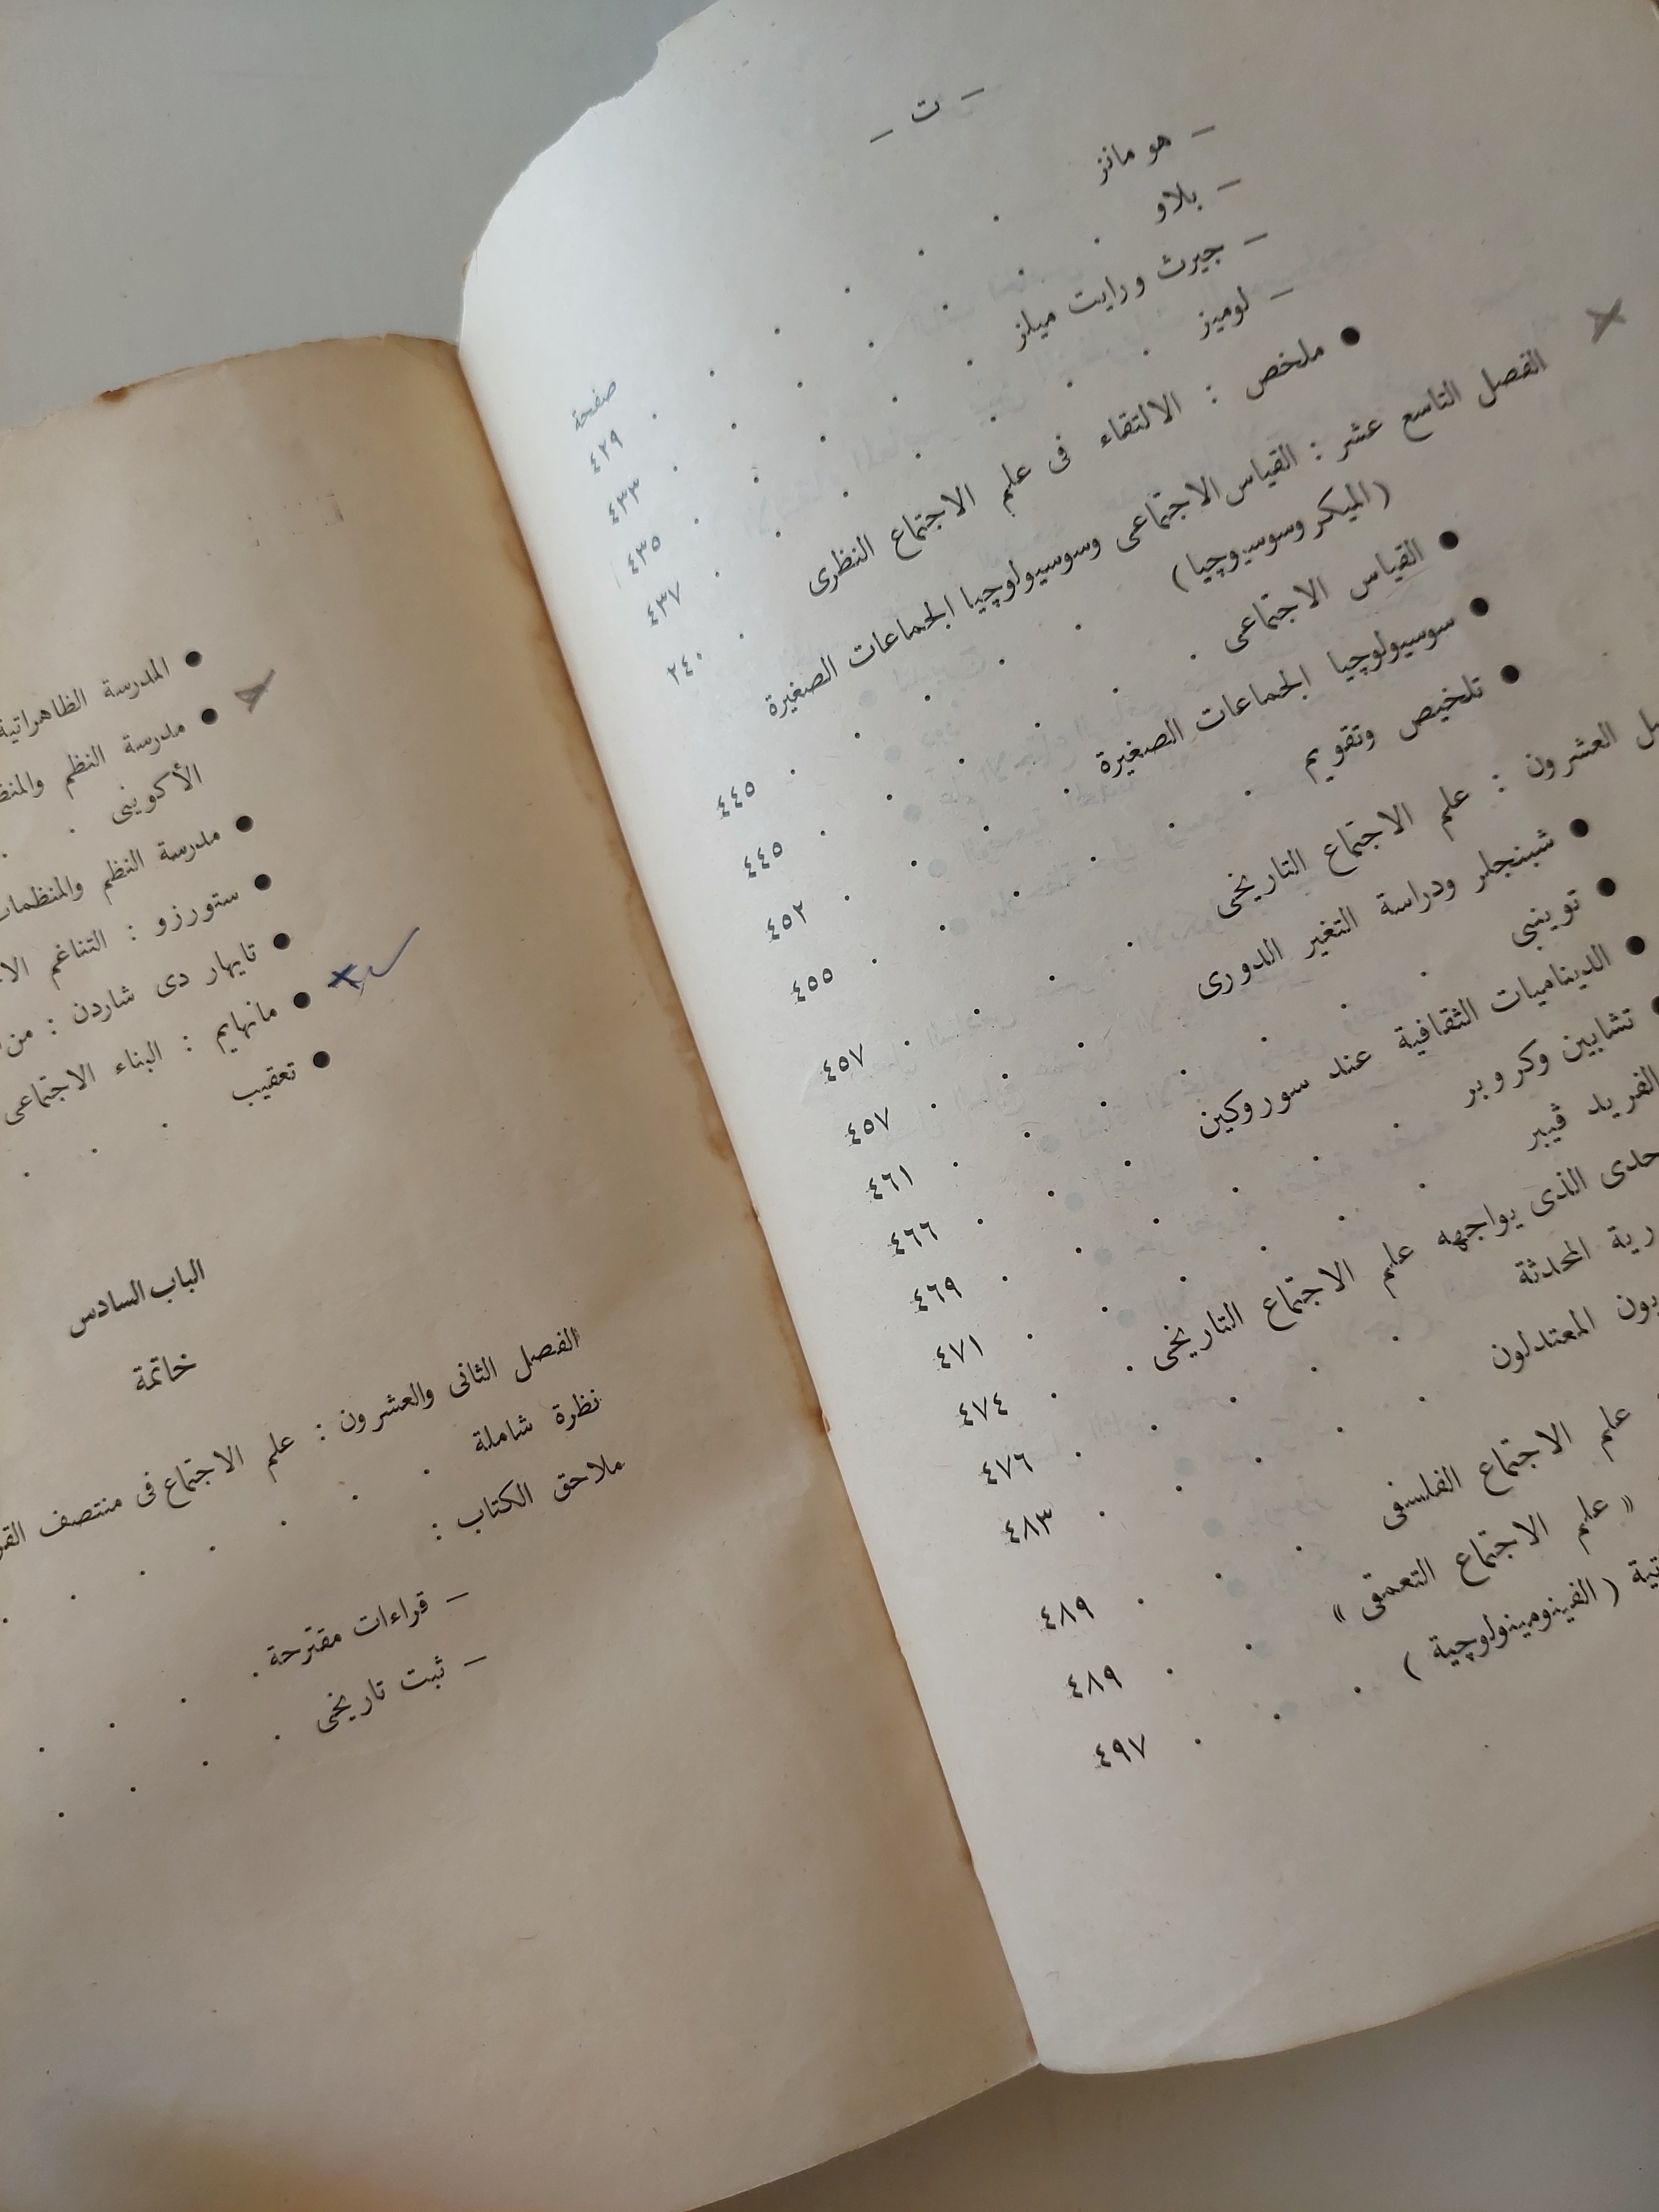 - ت -
صفحة
- هومانز . . . . . . ٤٢٩
- بلاو . . . . . . ٤٣٣
- جيرث ورايت ميلز . . . . . ٤٣٥
- لوميز . . . . . . ٤٣٧
● ملخص : الالتقاء فى علم الاجتماع النظرى . ٢٤٠
الفصل التاسع عشر : القياس الاجتماعى وسوسيولوچيا الجماعات الصغيرة
(الميكروسوسيوچيا) . . . . . ٤٤٥
● القياس الاجتماعى . . . . . ٤٤٥
● سوسيولوچيا الجماعات الصغيرة . . . . ٤٥٢
● تلخيص وتقويم . . . . . ٤٥٥
العشرون : علم الاجتماع التاريخى . . . . ٤٥٧
● شبنجلر ودراسة التغير الدورى . . . ٤٥٧
● توينبى . . . . . . ٤٦١
● الديناميات الثقافية عند سوروكين . . . ٤٦٦
● تشابين وكروبر . . . . . ٤٦٩
الفريد ڤيبر . . . . . ٤٧١
الذى يواجهه علم الاجتماع التاريخى . . ٤٧٤
المحدثة . . . . . ٤٧٦
المعتدلون . . . . . ٤٨٣
علم الاجتماع الفلسفى . . . ٤٨٩
« علم الاجتماع التعمقى » . . ٤٨٩
( الفينومينولوچية ) . . . ٤٩٧
● المدرسة الظاهراتية
● مدرسة النظم
الأكوينى .
● مدرسة النظم والمنظمات
● ستورزو : التناغم
● تايهار دى شاردن : من
● مانهايم : البناء الاجتماعى
● تعقيب . . .
الباب السادس
خاتمة
الفصل الثانى والعشرون : علم الاجتماع فى منتصف
نظرة شاملة . . . . . . .
ملاحق الكتاب :
- قراءات مقترحة . . . .
- ثبت تاريخى . . . .